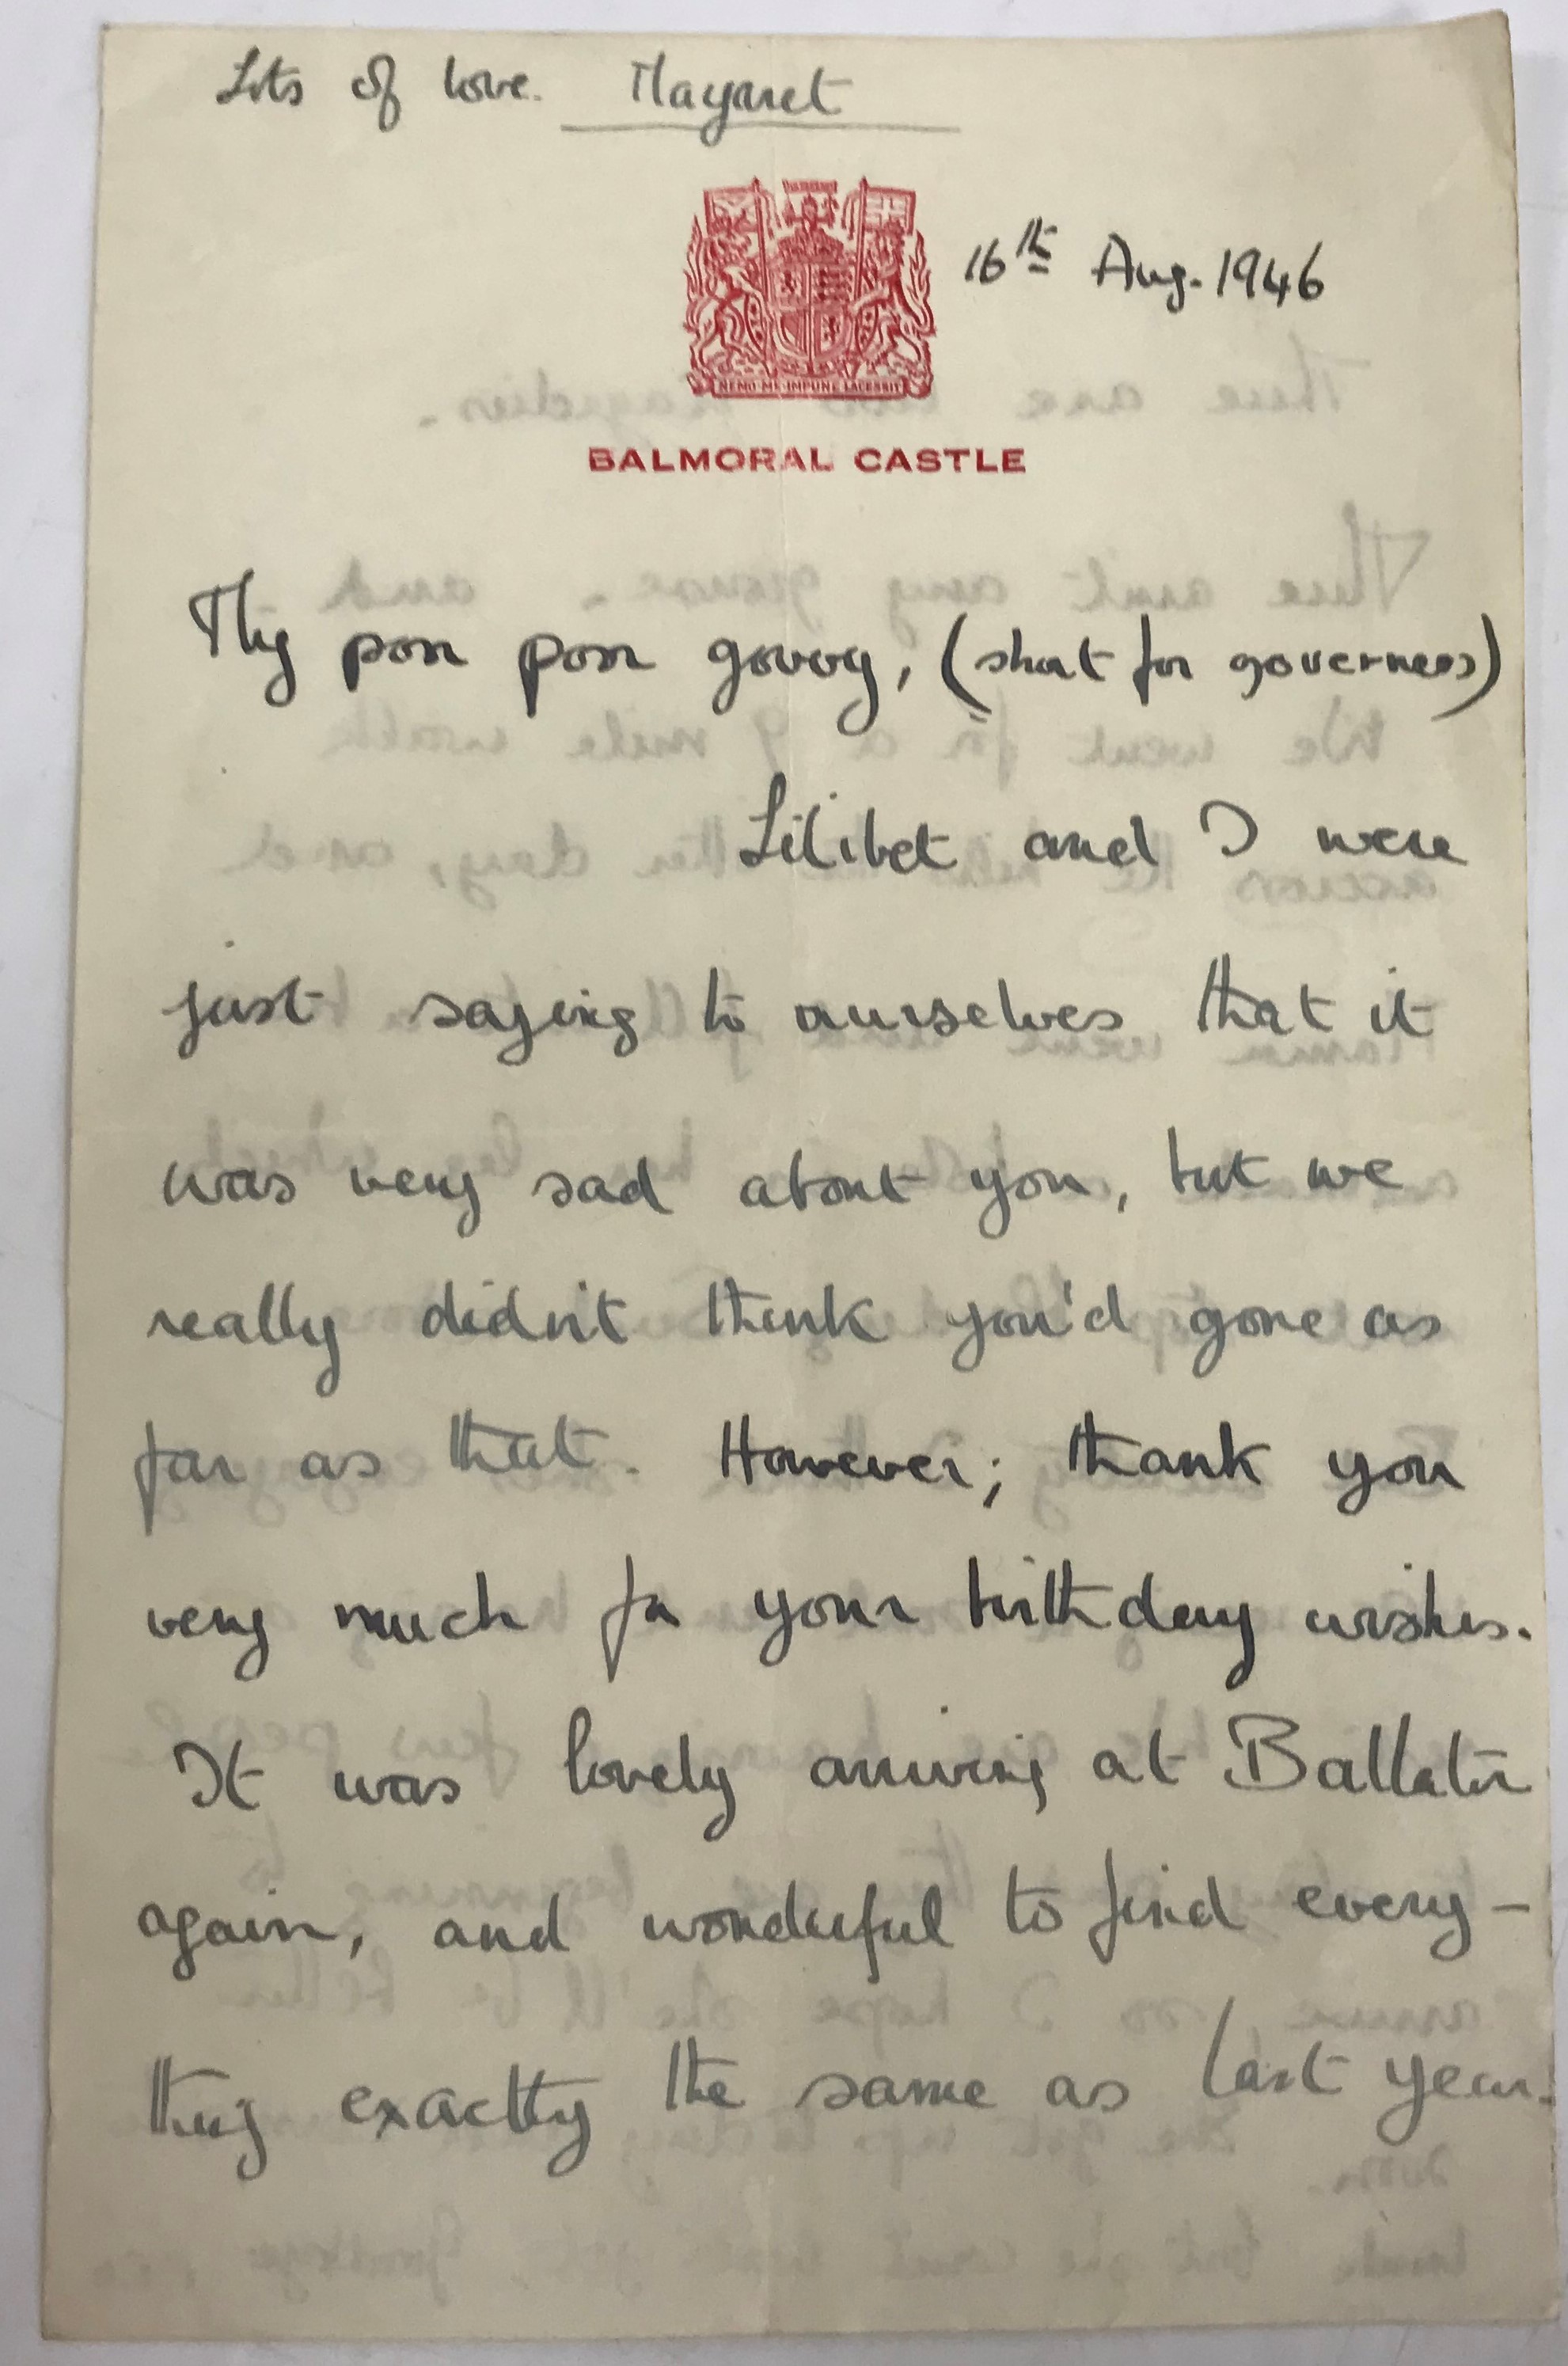 Lots of love. Margaret
16th Aug. 1946
NEMO ME IMPUNE LACESSIT
BALMORAL CASTLE
My poor poor govvy, (short for governess)
Lilibet and I were
just saying to ourselves that it
was very sad about you, but we
really didn't think you'd gone as
far as that. However; thank you
very much for your birthday wishes.
It was lovely arriving at Ballater
again, and wonderful to find every-
thing exactly the same as last year.